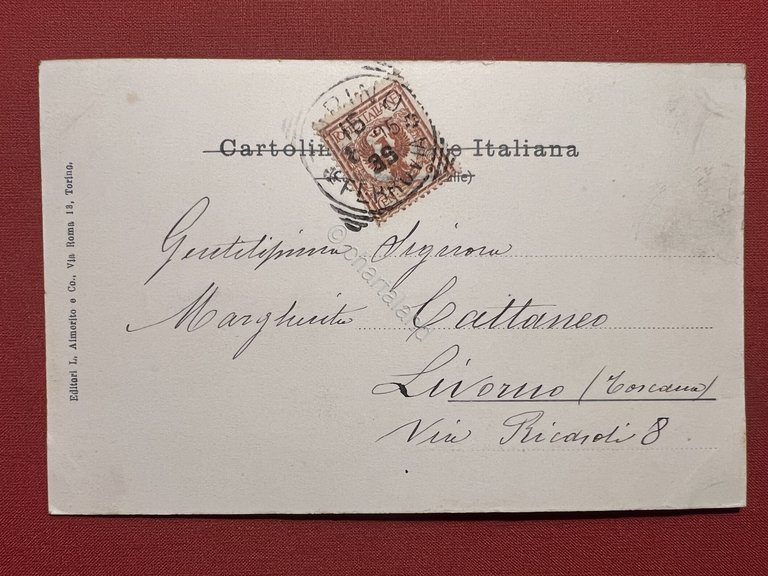 Cartolin e Italiana
Gentilissima Signora
Margherita Cattaneo
Livorno (Toscana)
Via Ricasoli 8
Editori L. Aimerito e Co., Via Roma 13, Torino.
© chartale